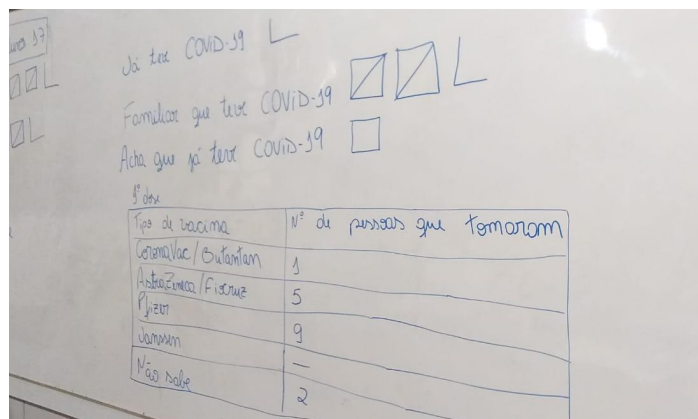 17
Já teve COVID-19
Familiar que teve COVID-19
Acha que já teve COVID-19
1ª dose
Tipo de vacina Nº de pessoas que tomaram
CoronaVac/Butantan 1
AstraZeneca/Fiocruz 5
Pfizer 9
Janssen —
Não sabe 2